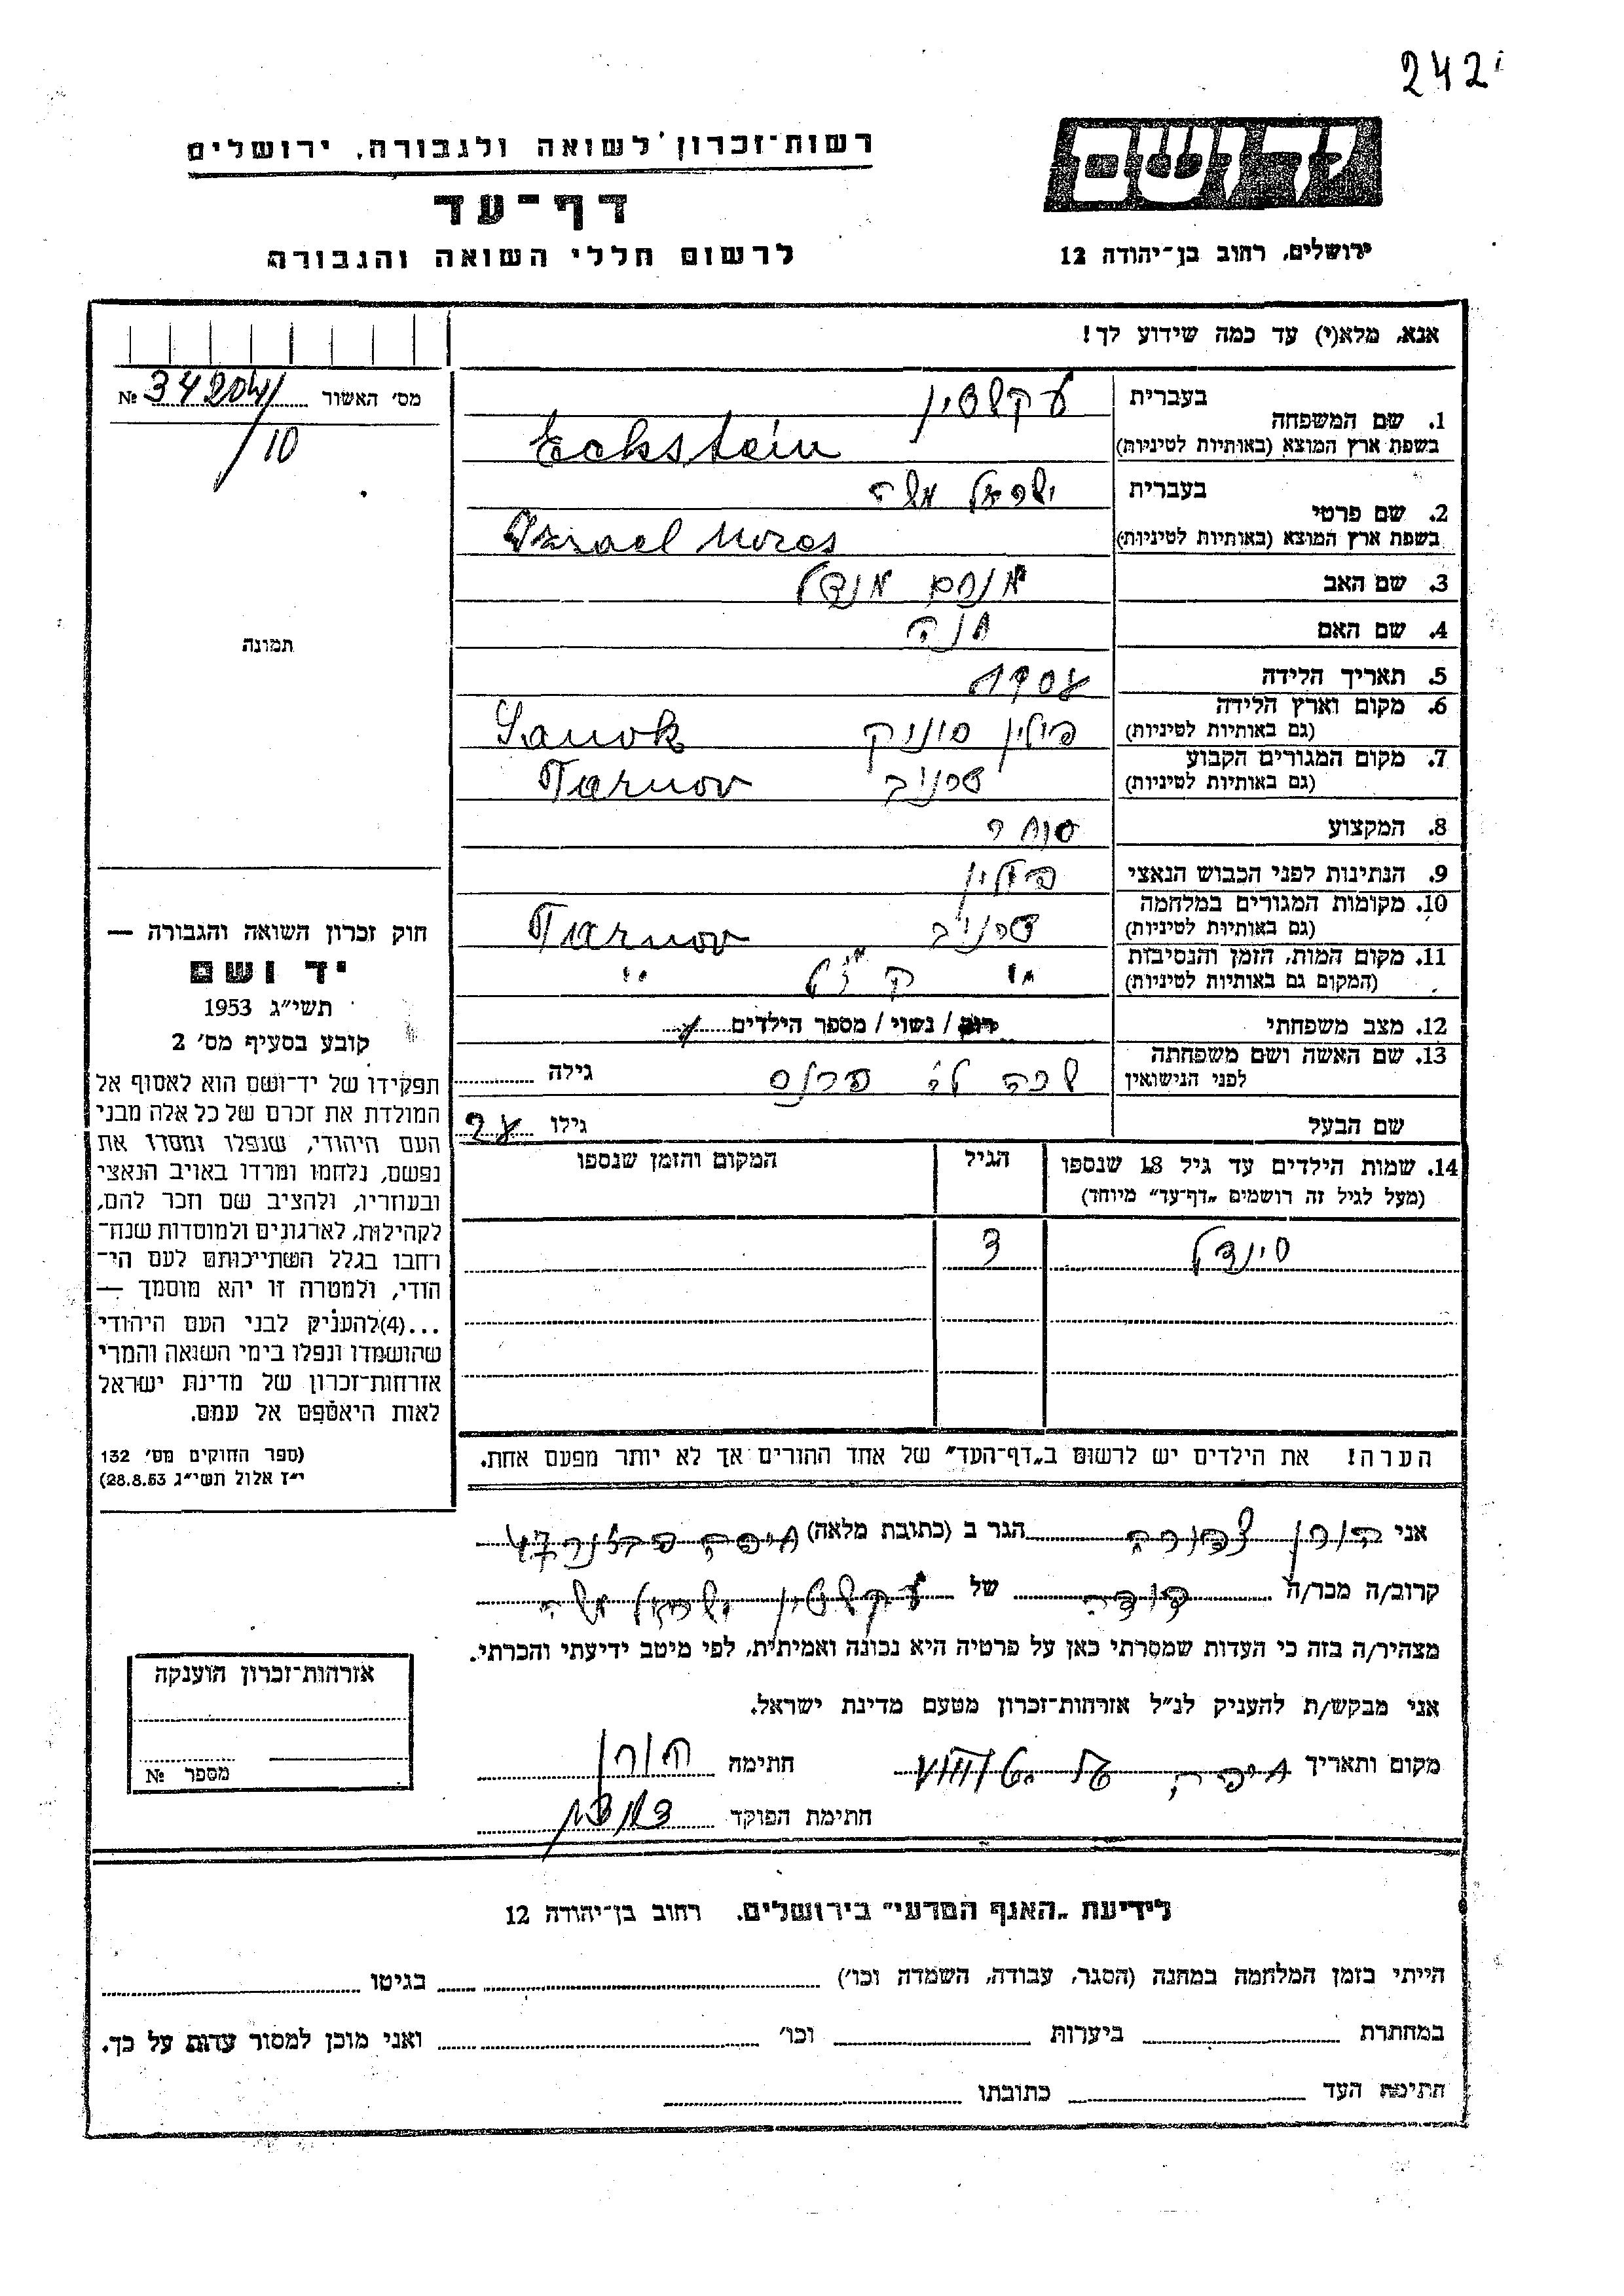 242
רשות־זכרון לשואה ולגבורה, ירושלים
דף־עד
לרשום חללי השואה והגבורה
יד ושם
ירושלים, רחוב בן־יהודה 12
אנא, מלא(י) עד כמה שידוע לך!
מס׳ האשור № 34204
/10
תמונה
1. שם המשפחה
בעברית עקשטין
בשפת ארץ המוצא (באותיות לטיניות) Eckstein
2. שם פרטי
בעברית ישראל משה
בשפת ארץ המוצא (באותיות לטיניות) Izrael Mozes
3. שם האב מנחם מנדל
4. שם האם חנה
5. תאריך הלידה
6. מקום וארץ הלידה
(גם באותיות לטיניות) פולין סנוק Sanok
7. מקום המגורים הקבוע
(גם באותיות לטיניות) טרנוב Tarnov
8. המקצוע סוחר
9. הנתינות לפני הכבוש הנאצי פולין
10. מקומות המגורים במלחמה
(גם באותיות לטיניות) טרנוב Tarnov
11. מקום המות, הזמן והנסיבות
(המקום גם באותיות לטיניות)
12. מצב משפחתי רווק / נשוי / מספר הילדים
13. שם האשה ושם משפחתה
לפני הנישואין שרה גילה
שם הבעל גילו
14. שמות הילדים עד גיל 18 שנספו
(מעל לגיל זה רושמים „דף־עד” מיוחד)
הגיל
המקום והזמן שנספו
3
הערה! את הילדים יש לרשום ב„דף־העד” של אחד ההורים אך לא יותר מפעם אחת.
חוק זכרון השואה והגבורה —
יד ושם
תשי״ג 1953
קובע בסעיף מס׳ 2
תפקידו של יד־ושם הוא לאסוף אל
המולדת את זכרם של כל אלה מבני
העם היהודי, שנפלו ומסרו את
נפשם, נלחמו ומרדו באויב הנאצי
ובעוזריו, ולהציב שם וזכר להם,
לקהילות, לארגונים ולמוסדות שנח־
רחבו בגלל השתייכותם לעם הי־
הודי, ולמטרה זו יהא מוסמך —
...(4)להעניק לבני העם היהודי
שהושמדו ונפלו בימי השואה והמרי
אזרחות־זכרון של מדינת ישראל
לאות היאספם אל עמם.
(ספר החוקים מס׳ 132
י״ז אלול תשי״ג 28.8.53)
אני הגר ב (כתובת מלאה) חיפה
קרוב/ה מכר/ה דודה של עקשטין ישראל משה
מצהיר/ה בזה כי העדות שמסרתי כאן על פרטיה היא נכונה ואמיתית, לפי מיטב ידיעתי והכרתי.
אני מבקש/ת להעניק לנ״ל אזרחות־זכרון מטעם מדינת ישראל.
מקום ותאריך חיפה חתימה
חתימת הפוקד
אזרחות־זכרון הוענקה
מספר №
לידיעת „האגף המדעי” בירושלים, רחוב בן־יהודה 12
הייתי בזמן המלחמה במחנה (הסגר, עבודה, השמדה וכו׳) בגיטו
במחתרת ביערות וכו׳ ואני מוכן למסור עדות על כך.
חתימת העד כתובתו